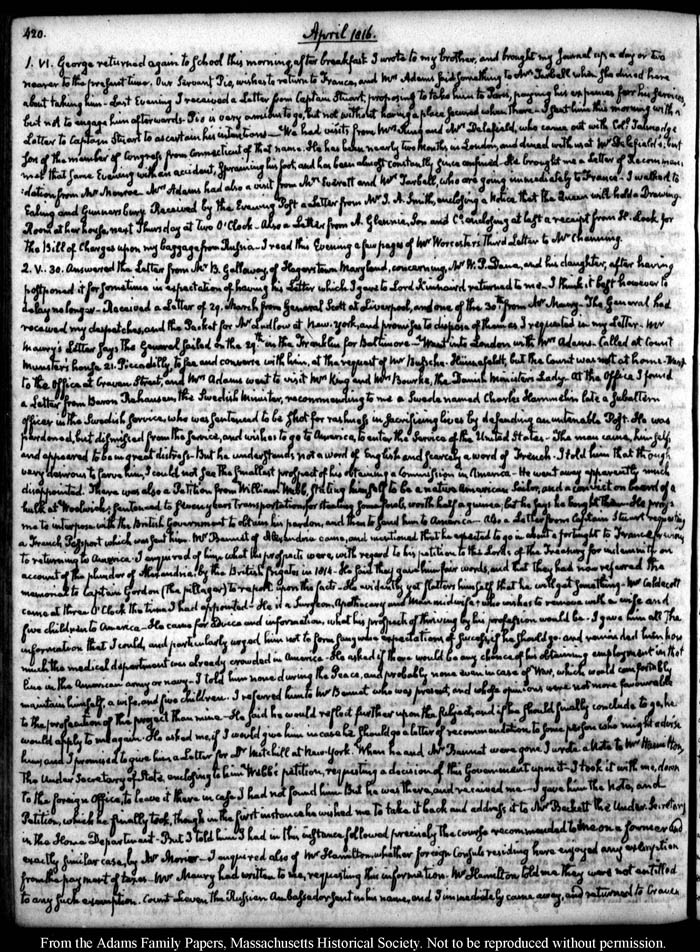 420.
April 1816.
1. VI. George returned again to School this morning, after breakfast I wrote to my brother, and brought my Journal up a day or two
nearer to the present time. Our Servant Pio, wishes to return to France, and Mrs Adams said something to Mrs Tarbell when she dined here
about taking him. Last Evening I received a Letter from Captain Stuart, proposing to take him to Paris, paying his expenses for his Services,
but not to engage him afterwards. Pio is very anxious to go, but not without having a place secured when there. I sent him this morning with a
Letter to Captain Stuart to ascertain his intentions. We had visits from Mr King and Mr Delafield, who came out with Coll. Talmadge
Son of the member of Congress from Connecticut of that name. He has been nearly two months in London, and dined with us at Mr Delafield's; but
met that same Evening with an accident, Spraining his foot, and has been almost constantly since confined. He brought me a Letter of Recommen-
dation from Mr Monroe. Mrs Adams had also a visit from Mrs Everett and Mrs Tarbell, who are going immediately to France. I walked to
Ealing and Gunnersbury. Received by the Evening Post a Letter from Mr J. A. Smith, enclosing a Notice that the Queen will hold a Drawing
Room at her house, next Thursday at two O'Clock. Also a Letter from A. Glennie, Son and Co. enclosing at last a receipt from H. Look for
the Bill of Charges upon my baggage from Russia. I read this Evening a few pages of Mr Worcester's Third Letter to Mr Channing.
2. V:30. Answered the Letter from Mr B. Galloway, of Hagerstown Maryland, concerning Mr W. P. Dana, and his daughter, after having
postponed it for sometime in expectation of having his Letter which I gave to Lord Kinnaird returned to me. I think it best however to
delay no longer. Received a Letter of 29. March from General Scott at Liverpool, and one of the 30th from Mr Maury. The General had
received my despatches, and the Packet for Mr Ludlow at New-York, and promises to dispose of them as I requested in my Letter. Mr
Maury's Letter says the General sailed on the 29th in the Franklin for Baltimore. Went into London with Mrs Adams. Called at Count
Munster's house 21. Piccadilly, to see and converse with him, at the request of Mr Busche-Hünnefeldt, but the Count was not at home. Went
to the Office at Craven Street, and Mrs Adams went to visit Mrs King and Mrs Bourke, the Danish Minister's Lady. At the Office I found
a Letter from Baron Rehausen, the Swedish Minister, recommending to me a Swede named Charles Hammelin late a subaltern
officer in the Swedish Service, who was sentenced to be shot for rashness in sacrificing lives by defending an untenable Post. He was
pardoned, but dismissed from the Service, and wishes to go to America, to enter the Service of the United States. The man came, himself,
and appeared to be in great distress. But he understands not a word of English and scarcely a word of French. I told him that though
very desirous to serve him, I could not see the smallest prospect of his obtaining a Commission in America. He went away apparently much
disappointed. There was also a Petition from William Webb, stating himself to be a native American Sailor, and a convict on board of a
hulk at Woolwich, sentenced to Seven years transportation for stealing some fowls, worth half a guinea; but he says he bought them. He prays
me to interpose with the British Government to obtain his pardon, and then to send him to America. Also a Letter from Captain Stuart requesting
a French Passport which was sent him. Mr Bennet of Alexandria came, and mentioned that he expected to go in about a fortnight to France, previous
to returning to America. I inquired of him what the prospects were, with regard to his petition to the Lords of the Treasury for indemnity on
account of the plunder of Alexandria by the British frigates in 1814. He said they gave him fair words, and that they had now referred the
memorial to Captain Gordon (the pillager) to report upon the facts. He evidently yet flatters himself that he will get something. Mr Caldecott
came at three O'Clock the time I had appointed. He is a Surgeon, Apothecary and Man-midwife; who wishes to remove with a wife and
five children to America. He came for advice and information, what his prospect of thriving by his profession would be. I gave him all the
information that I could, and particularly urged him not to form sanguine expectations of success if he should go; and reminded him how
much the medical department was already crowded in America. He asked if there would be any chance of his obtaining employment in that
line in the American army or navy. I told him none during the Peace, and probably none even in case of War, which would comfortably
maintain himself, a wife, and five children. I referred him to Mr Bennet who was present, and whose opinions were not more favourable
to the prosecution of the project than mine. He said he would reflect further upon the subject, and if he should finally conclude to go, he
would apply to me again. He asked me, if I would give him in case he should go a letter of recommendation to some person who might advise
him; and I promised to give him a Letter for Dr Mitchill at New-York. When he and Mr Bennet were gone I wrote a Note to Mr Hamilton,
the Under Secretary of State, enclosing to him Webb's petition, requesting a decision of this Government upon it. I took it with me, down
to the foreign Office, to leave it there in case I had not found him. But he was there, and received me. I gave him the Note, and
Petition, which he finally took, though in the first instance he wished me to take it back and address it to Mr Beckett the Under Secretary
in the Home Department. But I told him I had in this instance followed precisely the course recommended to me on a former and
exactly similar case, by Mr Morier. I inquired also of Mr Hamilton, whether foreign Consuls residing here enjoyed any exemption
from the payment of taxes. Mr Maury had written to me, requesting this information. Mr Hamilton told me they were not entitled
to any such exemption. Count Lieven the Russian Ambassador sent in his name, and I immediately came away, and returned to Craven
From the Adams Family Papers, Massachusetts Historical Society. Not to be reproduced without permission.